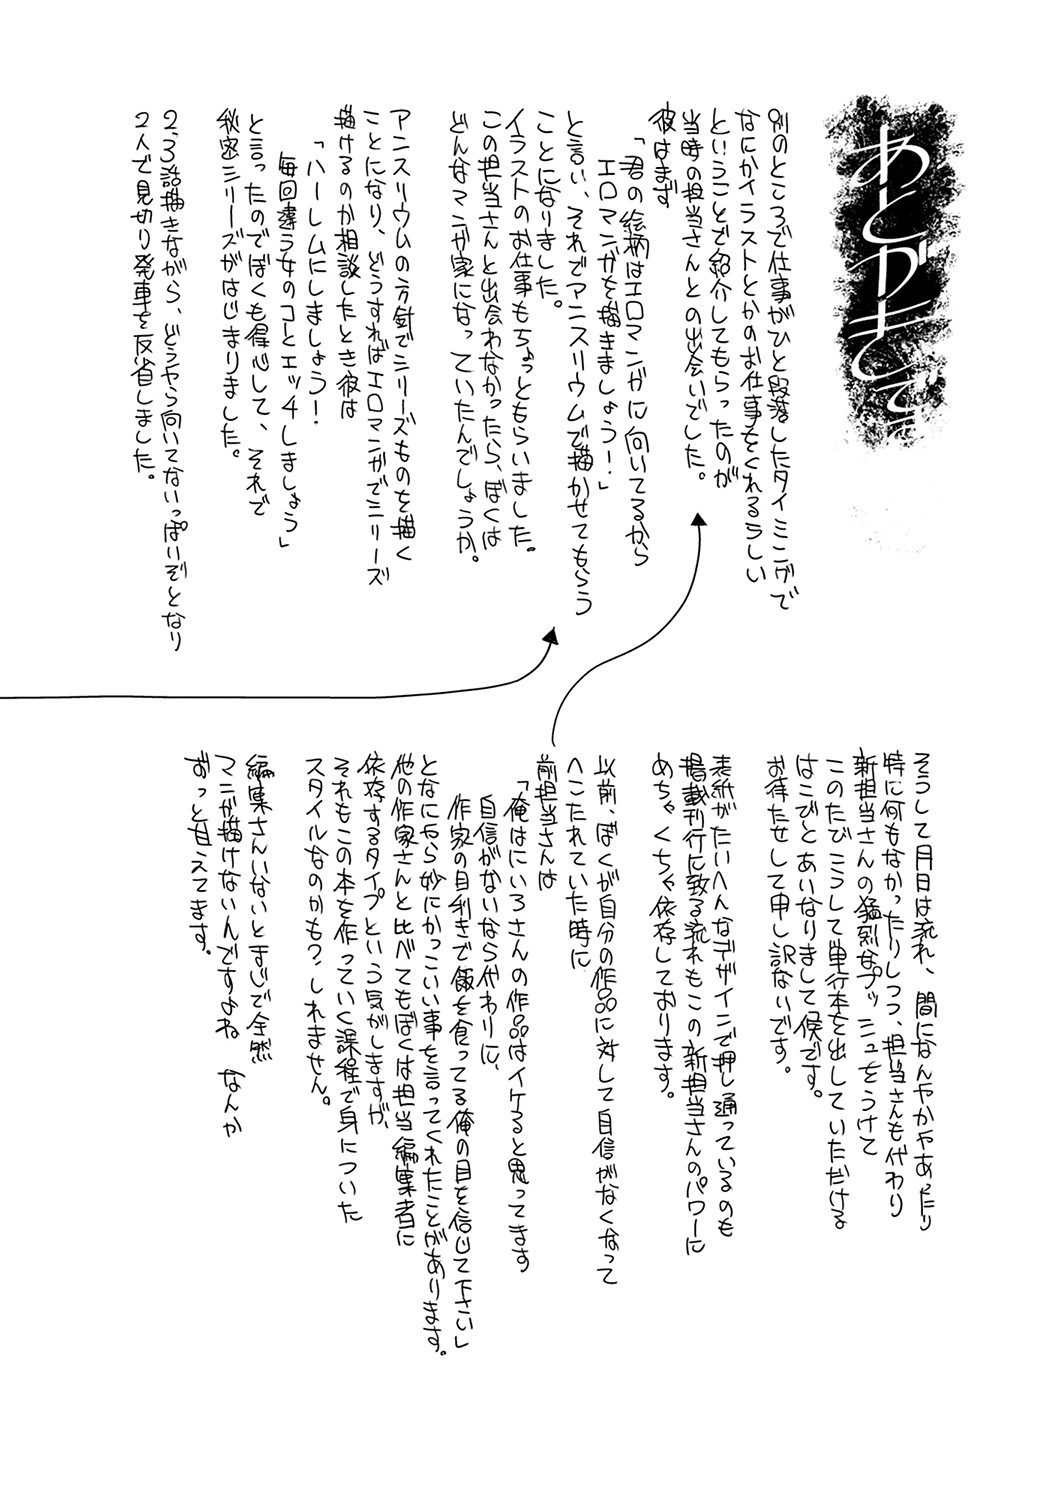 あとがきです
別のところで仕事がひと段落したタイミングで
なにかイラストとかのお仕事をくれるらしい
ということで紹介してもらったのが
当時の担当さんとの出会いでした。
彼はまず
「君の絵柄はエロマンガに向いてるから
エロマンガを描きましょう！」
と言い、それでアンスリウムで描かせてもらう
ことになりました。
イラストのお仕事もちょっともらいました。
この担当さんと出会わなかったら、ぼくは
どんなマンガ家になっていたんでしょうか。
アンスリウムの方針でシリーズものを描く
ことになり、どうすればエロマンガでシリーズ
描けるのか相談したとき彼は
「ハーレムにしましょう！
毎回違う女のコとエッチしましょう」
と言ったのでぼくも得心して、それで
秋家シリーズがはじまりました。
2、3話描きながら、どうやら向いてないっぽいぞとなり
2人で見切り発車を反省しました。
そうして月日は流れ、間になんやかやあったり
特に何もなかったりしつつ、担当さんも代わり
新担当さんの猛烈なプッシュをうけて
このたびこうして単行本を出していただける
はこびとあいなりまして候です。
お待たせして申し訳ないです。
表紙がたいへんなデザインで押し通っているのも
掲載刊行に致る流れもこの新担当さんのパワーに
めちゃくちゃ依存しております。
以前、ぼくが自分の作品に対して自信がなくなって
へこたれていた時に
前担当さんは
「俺はにいろさんの作品はイケると思ってます
自信がないなら代わりに、
作家の目利きで飯を食ってる俺の目を信じて下さい」
となにやら妙にかっこいい事を言ってくれたことがあります。
他の作家さんと比べてもぼくは担当編集者に
依存するタイプという気がしますが、
それもこの本を作っていく課程で身についた
スタイルなのかも？しれません。
編集さんいないとまじで全然
マンガ描けないんですよね なんか
ずっと甘えてます。